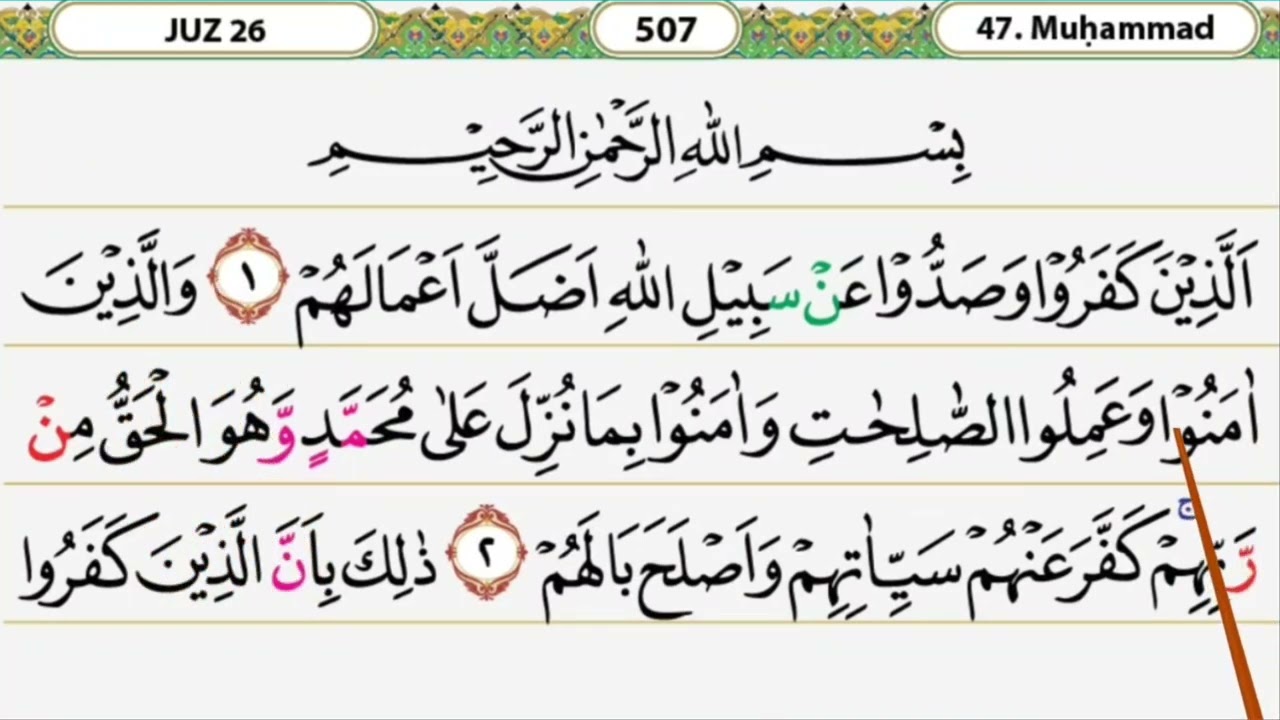 JUZ 26
507
47. Muḥammad
بِسْمِ اللّٰهِ الرَّحْمٰنِ الرَّحِيْمِ
اَلَّذِيْنَ كَفَرُوْا وَصَدُّوْا عَنْ سَبِيْلِ اللّٰهِ اَضَلَّ اَعْمَالَهُمْ ١ وَالَّذِيْنَ
اٰمَنُوْا وَعَمِلُوا الصّٰلِحٰتِ وَاٰمَنُوْا بِمَا نُزِّلَ عَلٰى مُحَمَّدٍ وَّهُوَ الْحَقُّ مِنْ
رَّبِّهِمْۚ كَفَّرَ عَنْهُمْ سَيِّاٰتِهِمْ وَاَصْلَحَ بَالَهُمْ ٢ ذٰلِكَ بِاَنَّ الَّذِيْنَ كَفَرُوا